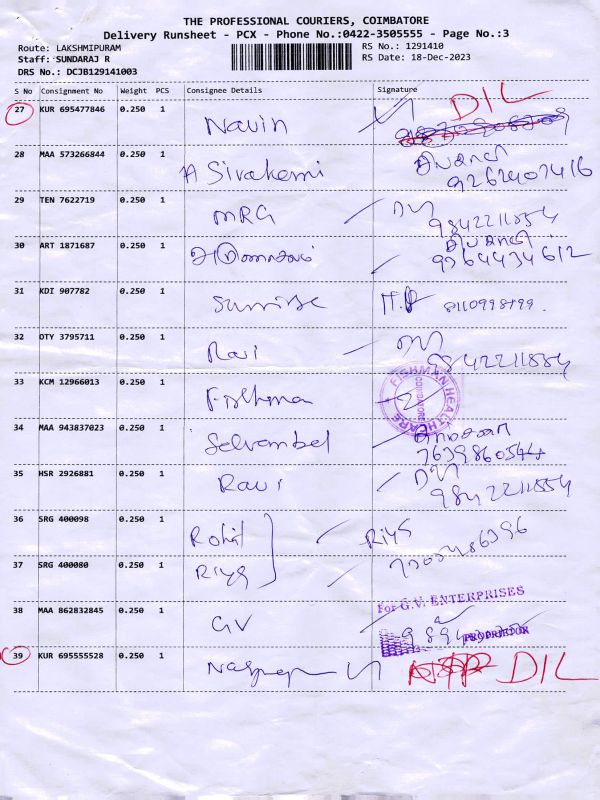 THE PROFESSIONAL COURIERS, COIMBATORE
Delivery Runsheet - PCX - Phone No.:0422-3505555 - Page No.:3
Route: LAKSHMIPURAM RS No.: 1291410
Staff: SUNDARAJ R RS Date: 18-Dec-2023
DRS No.: DCJB129141003
S No Consignment No Weight PCS Consignee Details Signature
27 KUR 695477846 0.250 1 Navin DIL
28 MAA 573266844 0.250 1 A Sivakami
29 TEN 7622719 0.250 1 MRG 9842211854
30 ART 1871687 0.250 1
31 KDI 907782 0.250 1 Sunrise
32 OTY 3795711 0.250 1 Ravi 9842211854
33 KCM 12966013 0.250 1 FISHMAN HEALTHCARE COIMBATORE
34 MAA 943837023 0.250 1
35 HSR 2926881 0.250 1 Ravi 9842211854
36 SRG 400098 0.250 1 Rohit Riya
37 SRG 400080 0.250 1 Riya
38 MAA 862832845 0.250 1 GV For G.V. ENTERPRISES
PROPRIETOR
39 KUR 695555528 0.250 1 DIL